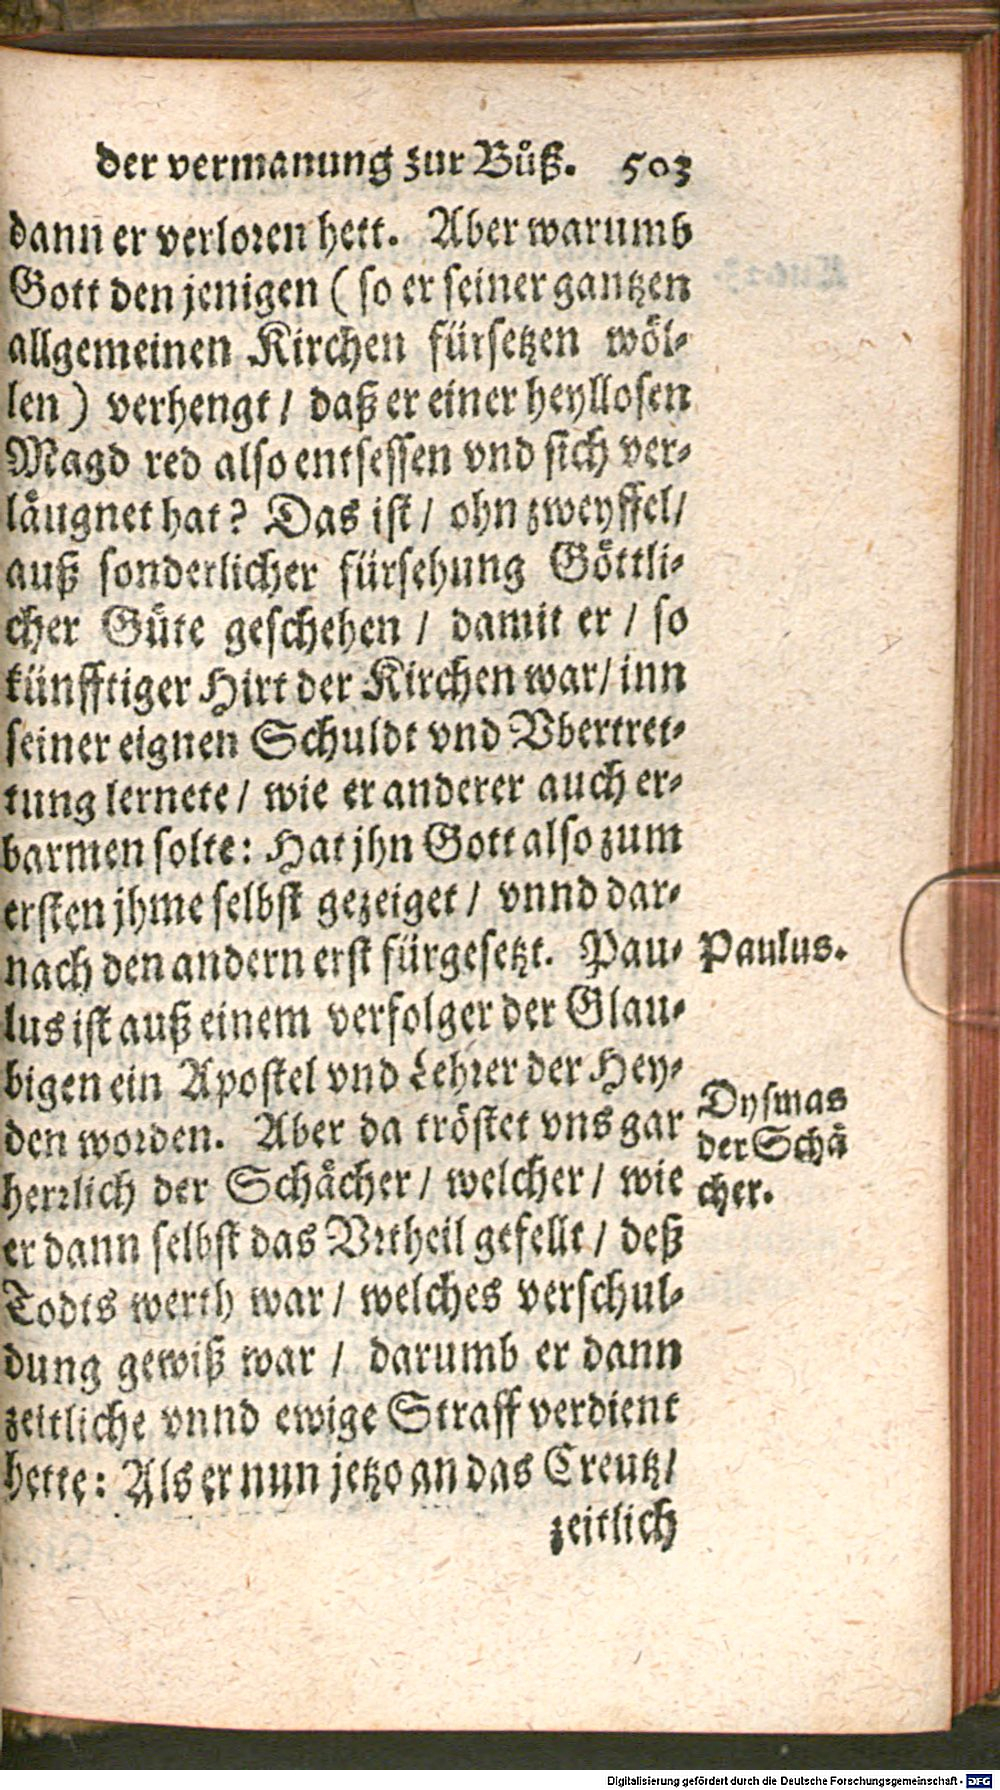 der vermanung zur Bůß. 503
dann er verloren hett. Aber warumb
Gott den jenigen ( so er seiner gantzen
allgemeinen Kirchen fürsetzen wöl-
len ) verhengt / daß er einer heyllosen
Magd red also entsessen vnd sich ver-
läugnet hat? Das ist / ohn zweyffel /
auß sonderlicher fürsehung Göttli-
cher Güte geschehen / damit er / so
künfftiger Hirt der Kirchen war / inn
seiner eignen Schuldt vnd Vbertret-
tung lernete / wie er anderer auch er-
barmen solte: Hat jhn Gott also zum
ersten jhme selbst gezeiget / vnnd dar-
nach den andern erst fürgesetzt. Pau-
Paulus.
lus ist auß einem verfolger der Glau-
bigen ein Apostel vnd Lehrer der Hey-
den worden. Aber da tröstet vns gar
Dysmas
der Schä
cher.
herrlich der Schächer / welcher / wie
er dann selbst das Vrtheil gefellt / deß
Todts werth war / welches verschul-
dung gewiß war / darumb er dann
zeitliche vnnd ewige Straff verdient
hette: Als er nun jetzo an das Creutz /
zeitlich
Digitalisierung gefördert durch die Deutsche Forschungsgemeinschaft - DFG